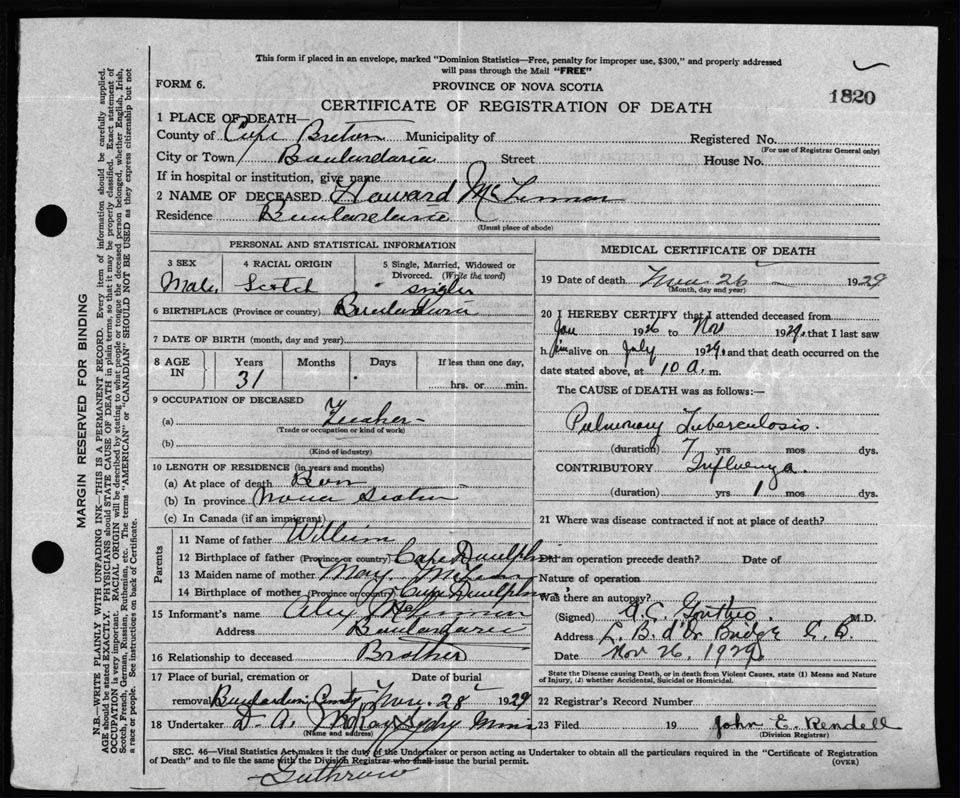 This form if placed in an envelope, marked "Dominion Statistics—Free, penalty for improper use, $300," and properly addressed
will pass through the Mail "FREE"
FORM 6.
PROVINCE OF NOVA SCOTIA
1820
CERTIFICATE OF REGISTRATION OF DEATH
1 PLACE OF DEATH—
County of Cape Breton Municipality of Registered No.
(For use of Registrar General only)
City or Town Boulardarie Street House No.
If in hospital or institution, give name
2 NAME OF DECEASED Howard
Residence Boulardarie
(Usual place of abode)
PERSONAL AND STATISTICAL INFORMATION
3 SEX 4 RACIAL ORIGIN 5 Single, Married, Widowed or Divorced. (Write the word)
Male Scotch single
6 BIRTHPLACE (Province or country) Boulardarie
7 DATE OF BIRTH (month, day and year)
8 AGE IN Years Months Days If less than one day,
31 hrs. or min.
9 OCCUPATION OF DECEASED
(a)
(Trade or occupation or kind of work)
(b)
(Kind of industry)
10 LENGTH OF RESIDENCE (in years and months)
(a) At place of death Born
(b) In province Nova Scotia
(c) In Canada (if an immigrant)
Parents
11 Name of father William
12 Birthplace of father (Province or country) Cape Dauphin
13 Maiden name of mother Mary
14 Birthplace of mother (Province or country) Cape Dauphin
15 Informant's name Alex
Address Boulardarie
16 Relationship to deceased Brother
17 Place of burial, cremation or Date of burial
removal Boulardarie Nov. 28 1929
18 Undertaker D. A.
(Name and address)
MEDICAL CERTIFICATE OF DEATH
19 Date of death Nov 26 1929
(Month, day and year)
20 I HEREBY CERTIFY that I attended deceased from
Jan 1926 to Nov 1929, that I last saw
him alive on July 1929, and that death occurred on
date stated above, at 10 a. m.
The CAUSE of DEATH was as follows:
Pulmonary Tuberculosis.
(duration) 7 yrs mos dys.
CONTRIBUTORY Influenza.
(duration) yrs 1 mos dys.
21 Where was disease contracted if not at place of death?
Did an operation precede death? Date of
Nature of operation
Was there an autopsy?
(Signed) A. C. M.D.
Address L. B. d'Or Bridge C. B.
Date Nov 26, 1929
State the Disease causing Death, or in death from Violent Causes, state (1) Means and
Nature of Injury, (2) whether Accidental, Suicidal or Homicidal.
22 Registrar's Record Number
23 Filed 19 John E. Rendell
(Division Registrar)
SEC. 46—Vital Statistics Act makes it the duty of the Undertaker or person acting as Undertaker to obtain all the particulars required in the "Certificate of Registration
of Death" and to file the same with the Division Registrar who shall issue the burial permit.
(OVER)
MARGIN RESERVED FOR BINDING
N.B.—WRITE PLAINLY WITH UNFADING INK—THIS IS A PERMANENT RECORD. Every item of information should be carefully supplied.
AGE should be stated EXACTLY. PHYSICIANS should STATE CAUSE OF DEATH in plain terms, so that it may be properly classified. Exact statement of
OCCUPATION is very important. RACIAL ORIGIN will be described by stating to what people or tongue the deceased person belonged, whether English, Irish,
Scotch, French, German, Russian, Ruthenian, etc. The terms "AMERICAN" or "CANADIAN" SHOULD NOT BE USED as they express citizenship but not
a race or people. See instructions on back of Certificate.